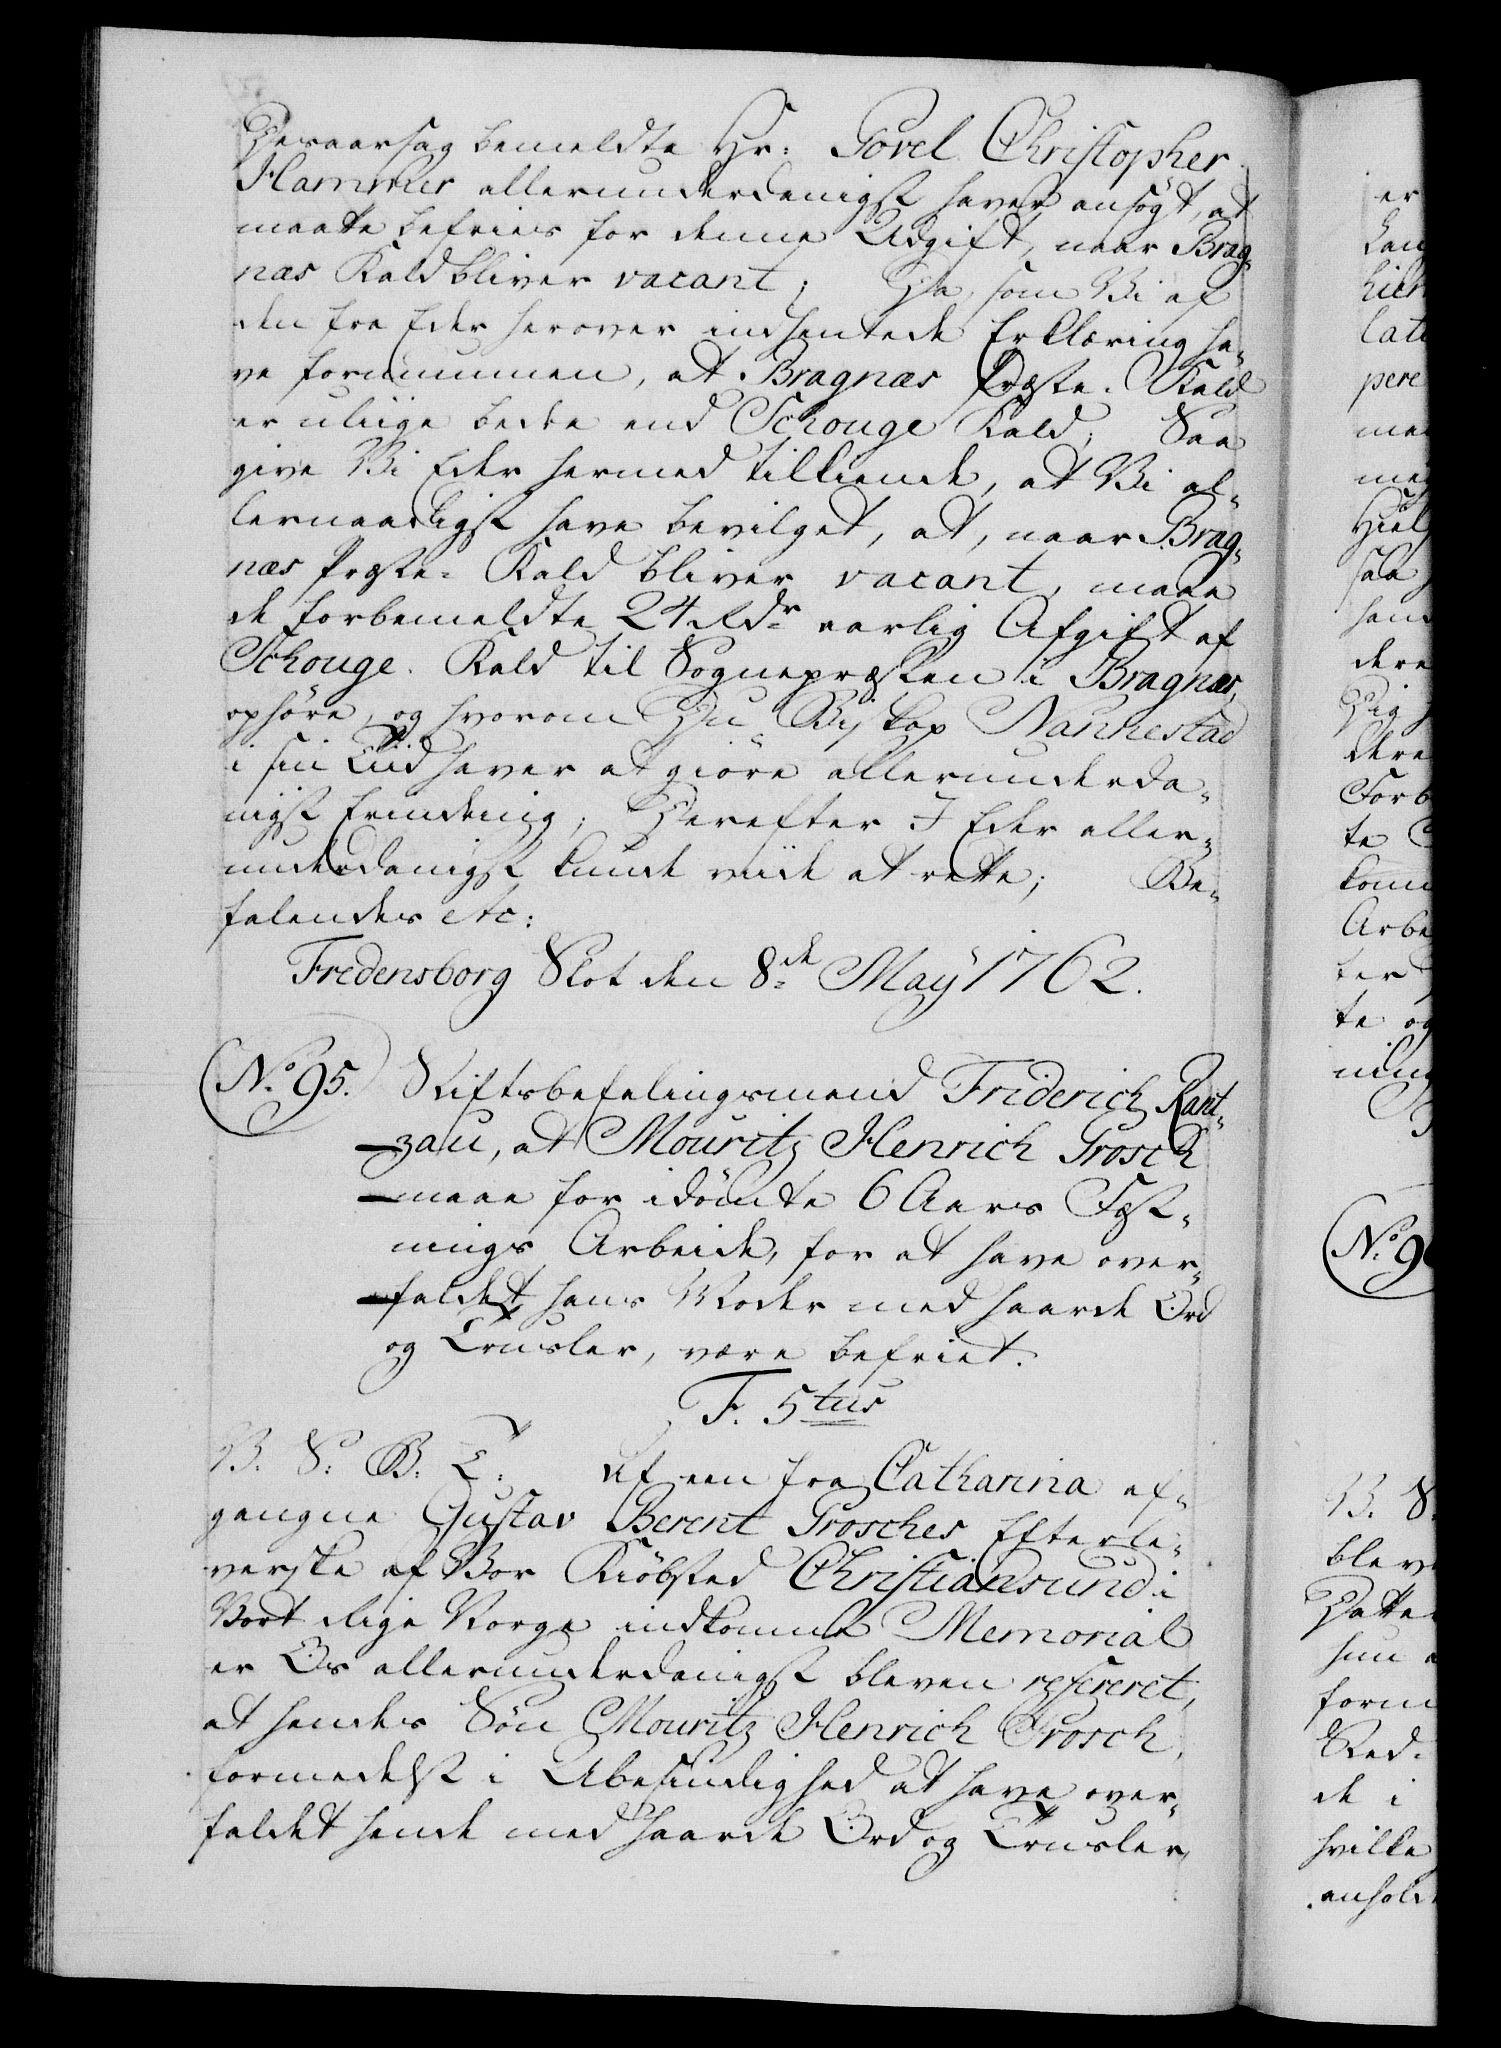 Desaarsag bemeldte Hr: Povel Christopher
Hammer allerunderdanigst haver ansögt, at
maatte befries for denne Udgift, naar Brag-
næs Kald bliver vacant; Da, som Vi af
den fra Eder herover indhentede Erklæring ha-
ve fornummen, at Bragnæs Præste-Kald
er uliige bedre end Schouge Kald; Saa
give Vi Eder hermed tilkiende, at Vi al-
lernaadigst have bevilget, at, naar Brag-
næs Præste-Kald bliver vacant, maae
de forbemeldte 24 Rdr aarlig Afgift af
Schouge-Kald til Sognepræsten i Bragnæs,
ophöre, og hvorom Du Biskop Nannestad
i sin Tiid haver at giöre allerunderda-
nigst Erindring; Derefter I Eder aller-
underdanigst kunde viide at rette; Be-
falendes etc:
Fredensborg Slot den 8de May 1762.
No 95. Stiftsbefalingsmand Friderich Rant-
zau, at Mouritz Henrich Grosch
maae for idömte 6 Aars Fæst-
nings Arbeide, for at have over-
faldet hans Moder med haarde Ord
og Trusler, være befriet.
F. 5tus
V. S. G. T: Af een fra Catharina af-
gangne Gustav Berent Grosches Efterle-
verske af Vor Kiöbsted Christiansund i
Vort Rige Norge indkomne Memorial
er Os allerunderdanigst bleven refereret,
at hendes Sön Mouritz Henrich Grosch,
formedelst i Ubesindighed at have over-
faldet hende med haarde Ord og Trusler,